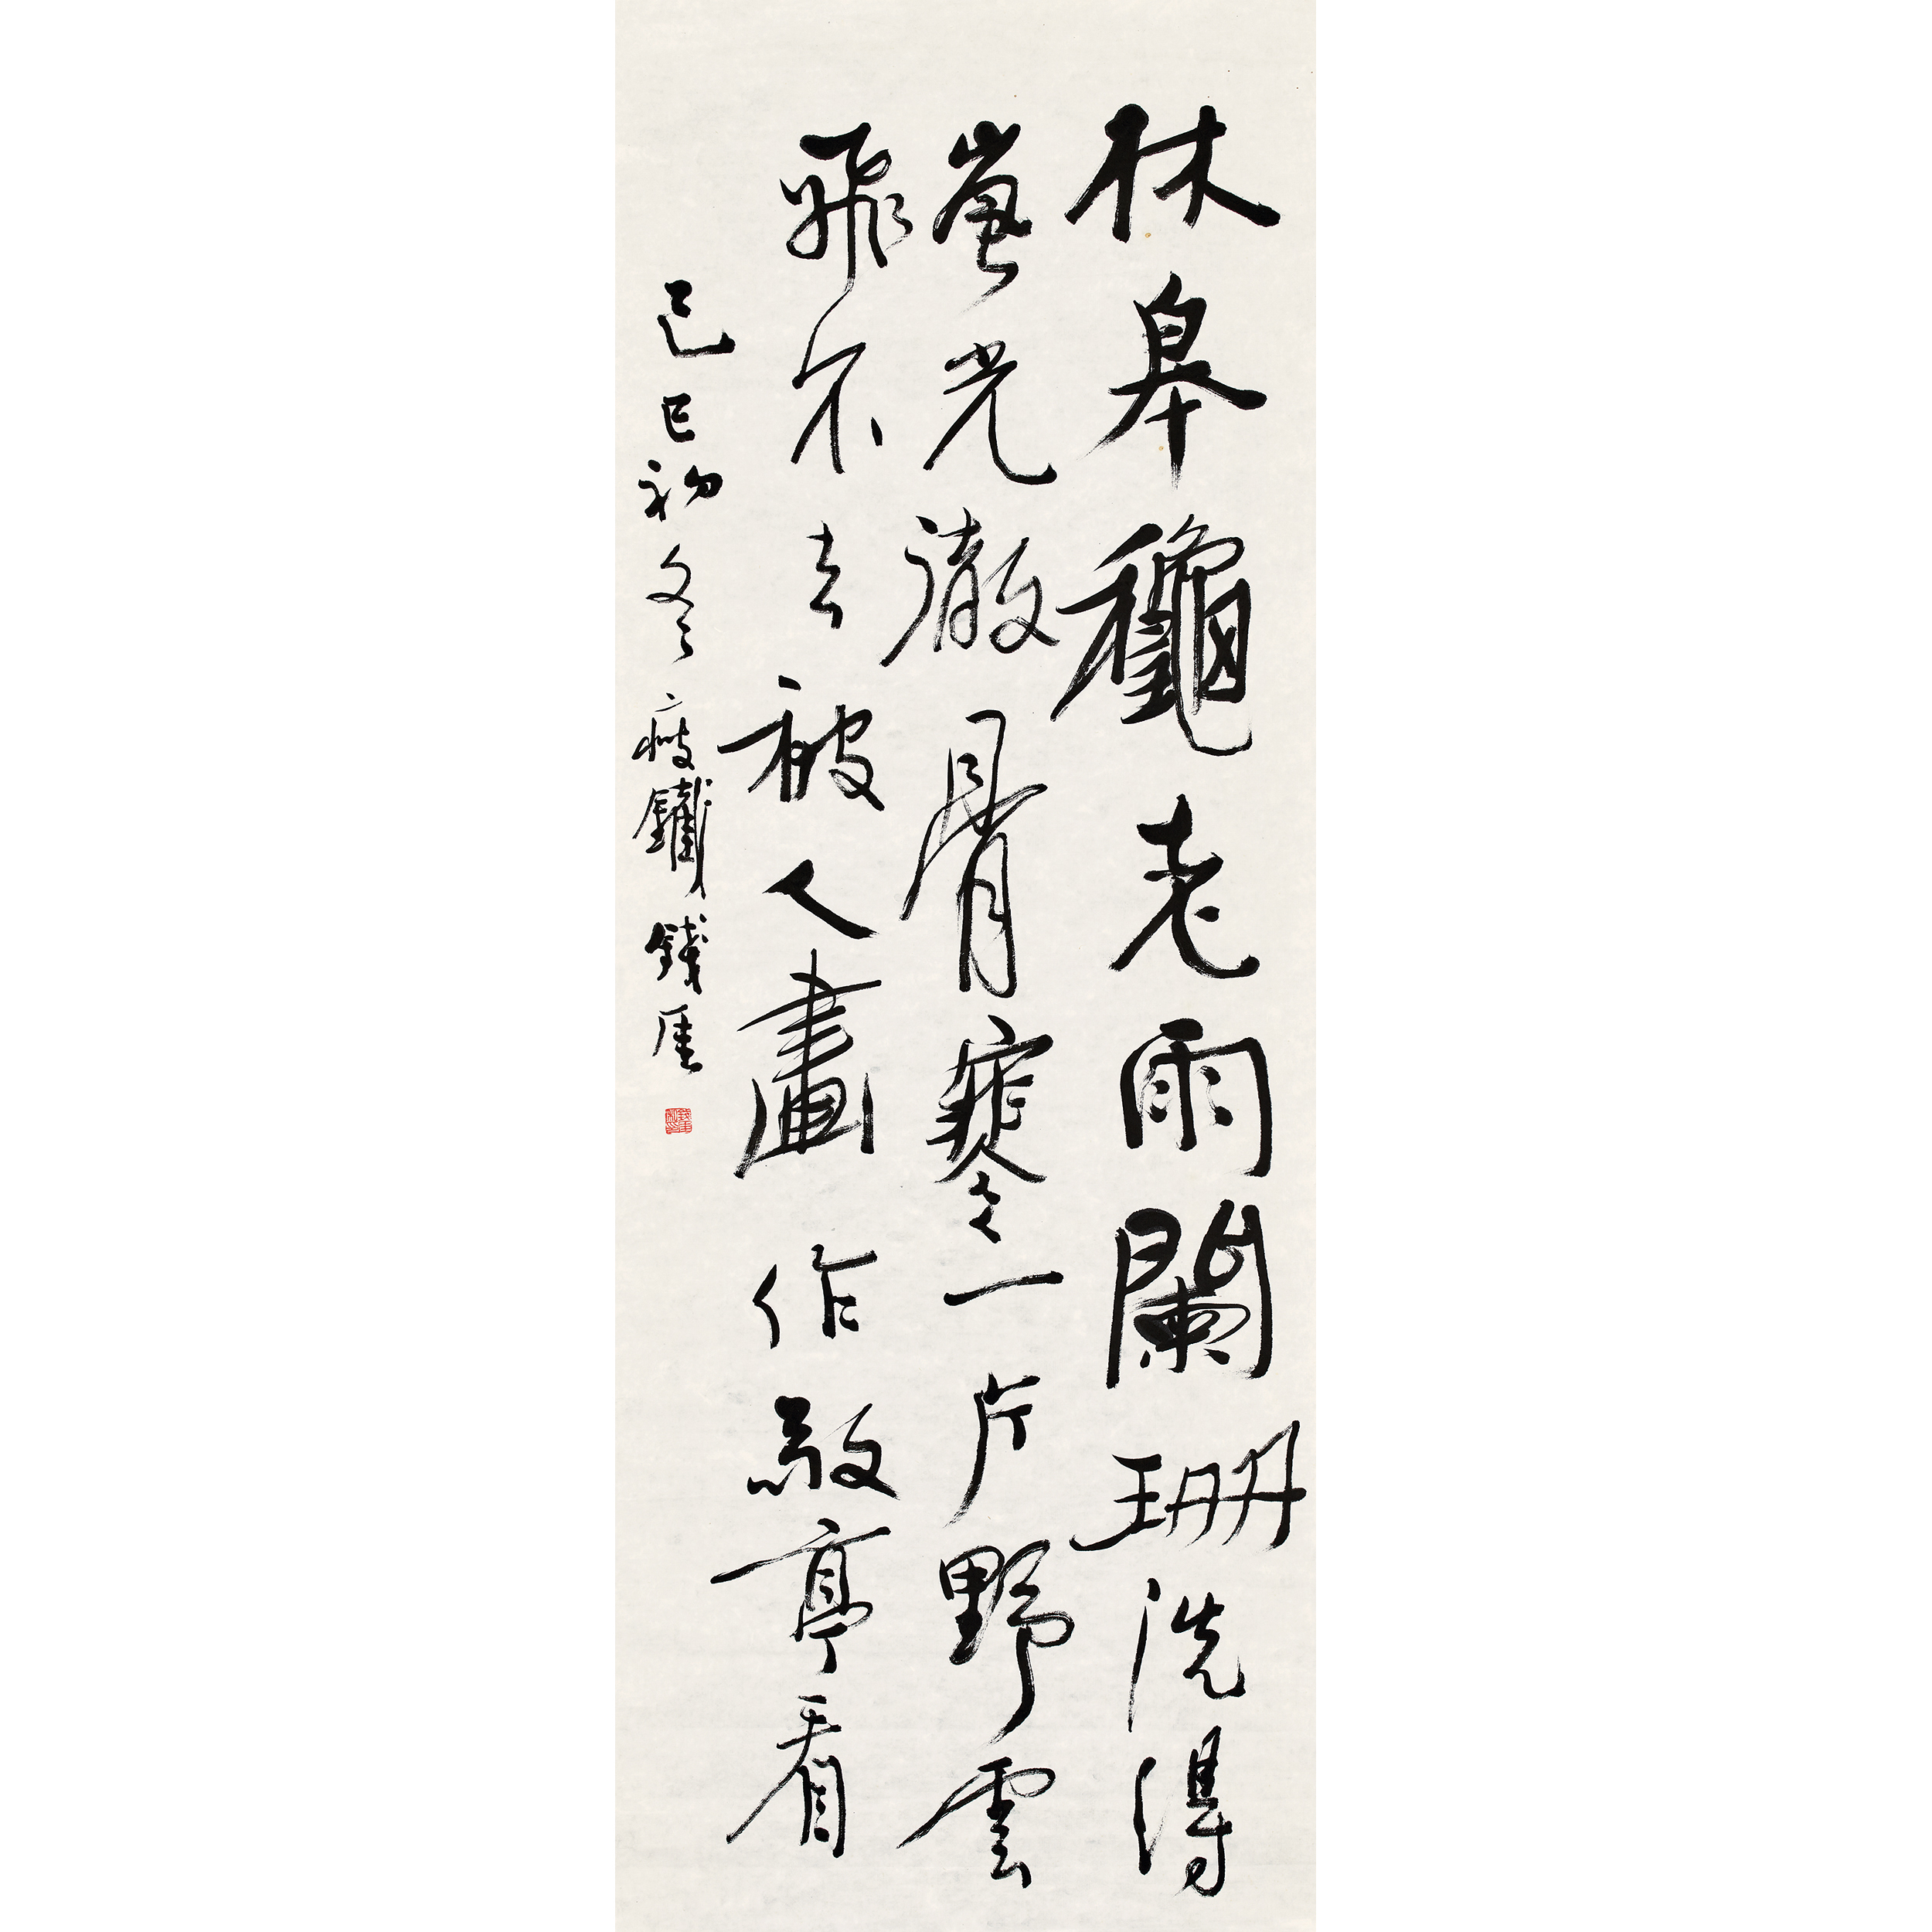 林皋龝老雨闌珊洗得
嵐光澈骨寒一片野雲
飛不去被人畫作敬亭看
己巳初冬瘦鐵錢厓